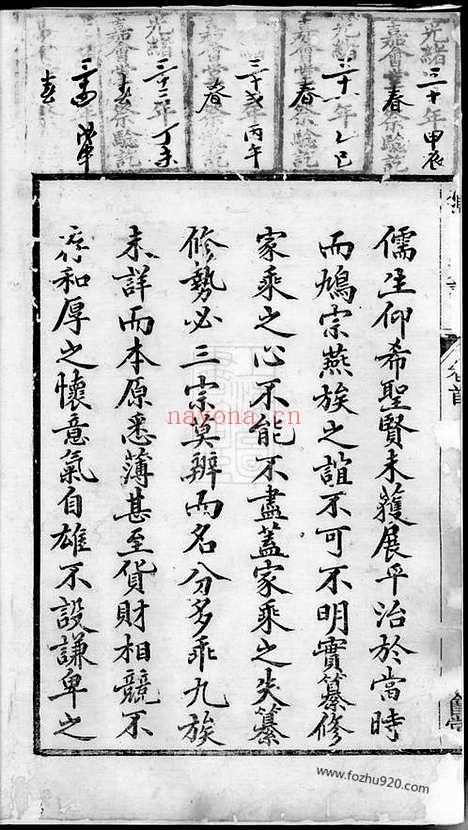 光緒三十年甲辰
嘉會堂春祭驗記
三十一年乙巳
嘉會堂春祭驗記
三十貳年丙午
嘉會堂春祭驗記
光緒三十三年丁未
嘉會堂春祭驗記
戊申
春
卷首
儒生仰希聖賢未獲展平治於當時
而鳩宗燕族之誼不可不明實纂修
家乘之心不能不盡蓋家乘之失纂
修勢必三宗莫辨而名分多乖九族
未詳而本原悉薄甚至貨財相競不
存和厚之懷意氣自雄不設謙卑之
nayona.cn
www.fozhu920.com